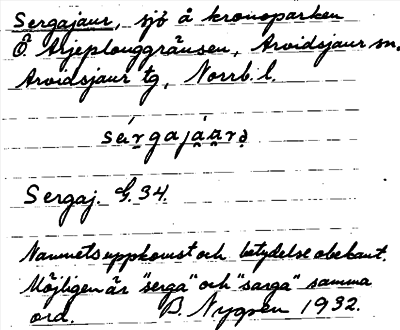 Sergajaur, sjö å kronoparken
Ö. Arjeplouggränsen, Arvidsjaur sn.
Arvidsjaur tg, Norrb. l.
sérgajáurə
Sergaj. G. 34.
Namnets uppkomst och betydelse obekant.
Möjligen är "serga" och "sarga" samma
ord. B. Nygren 1932.